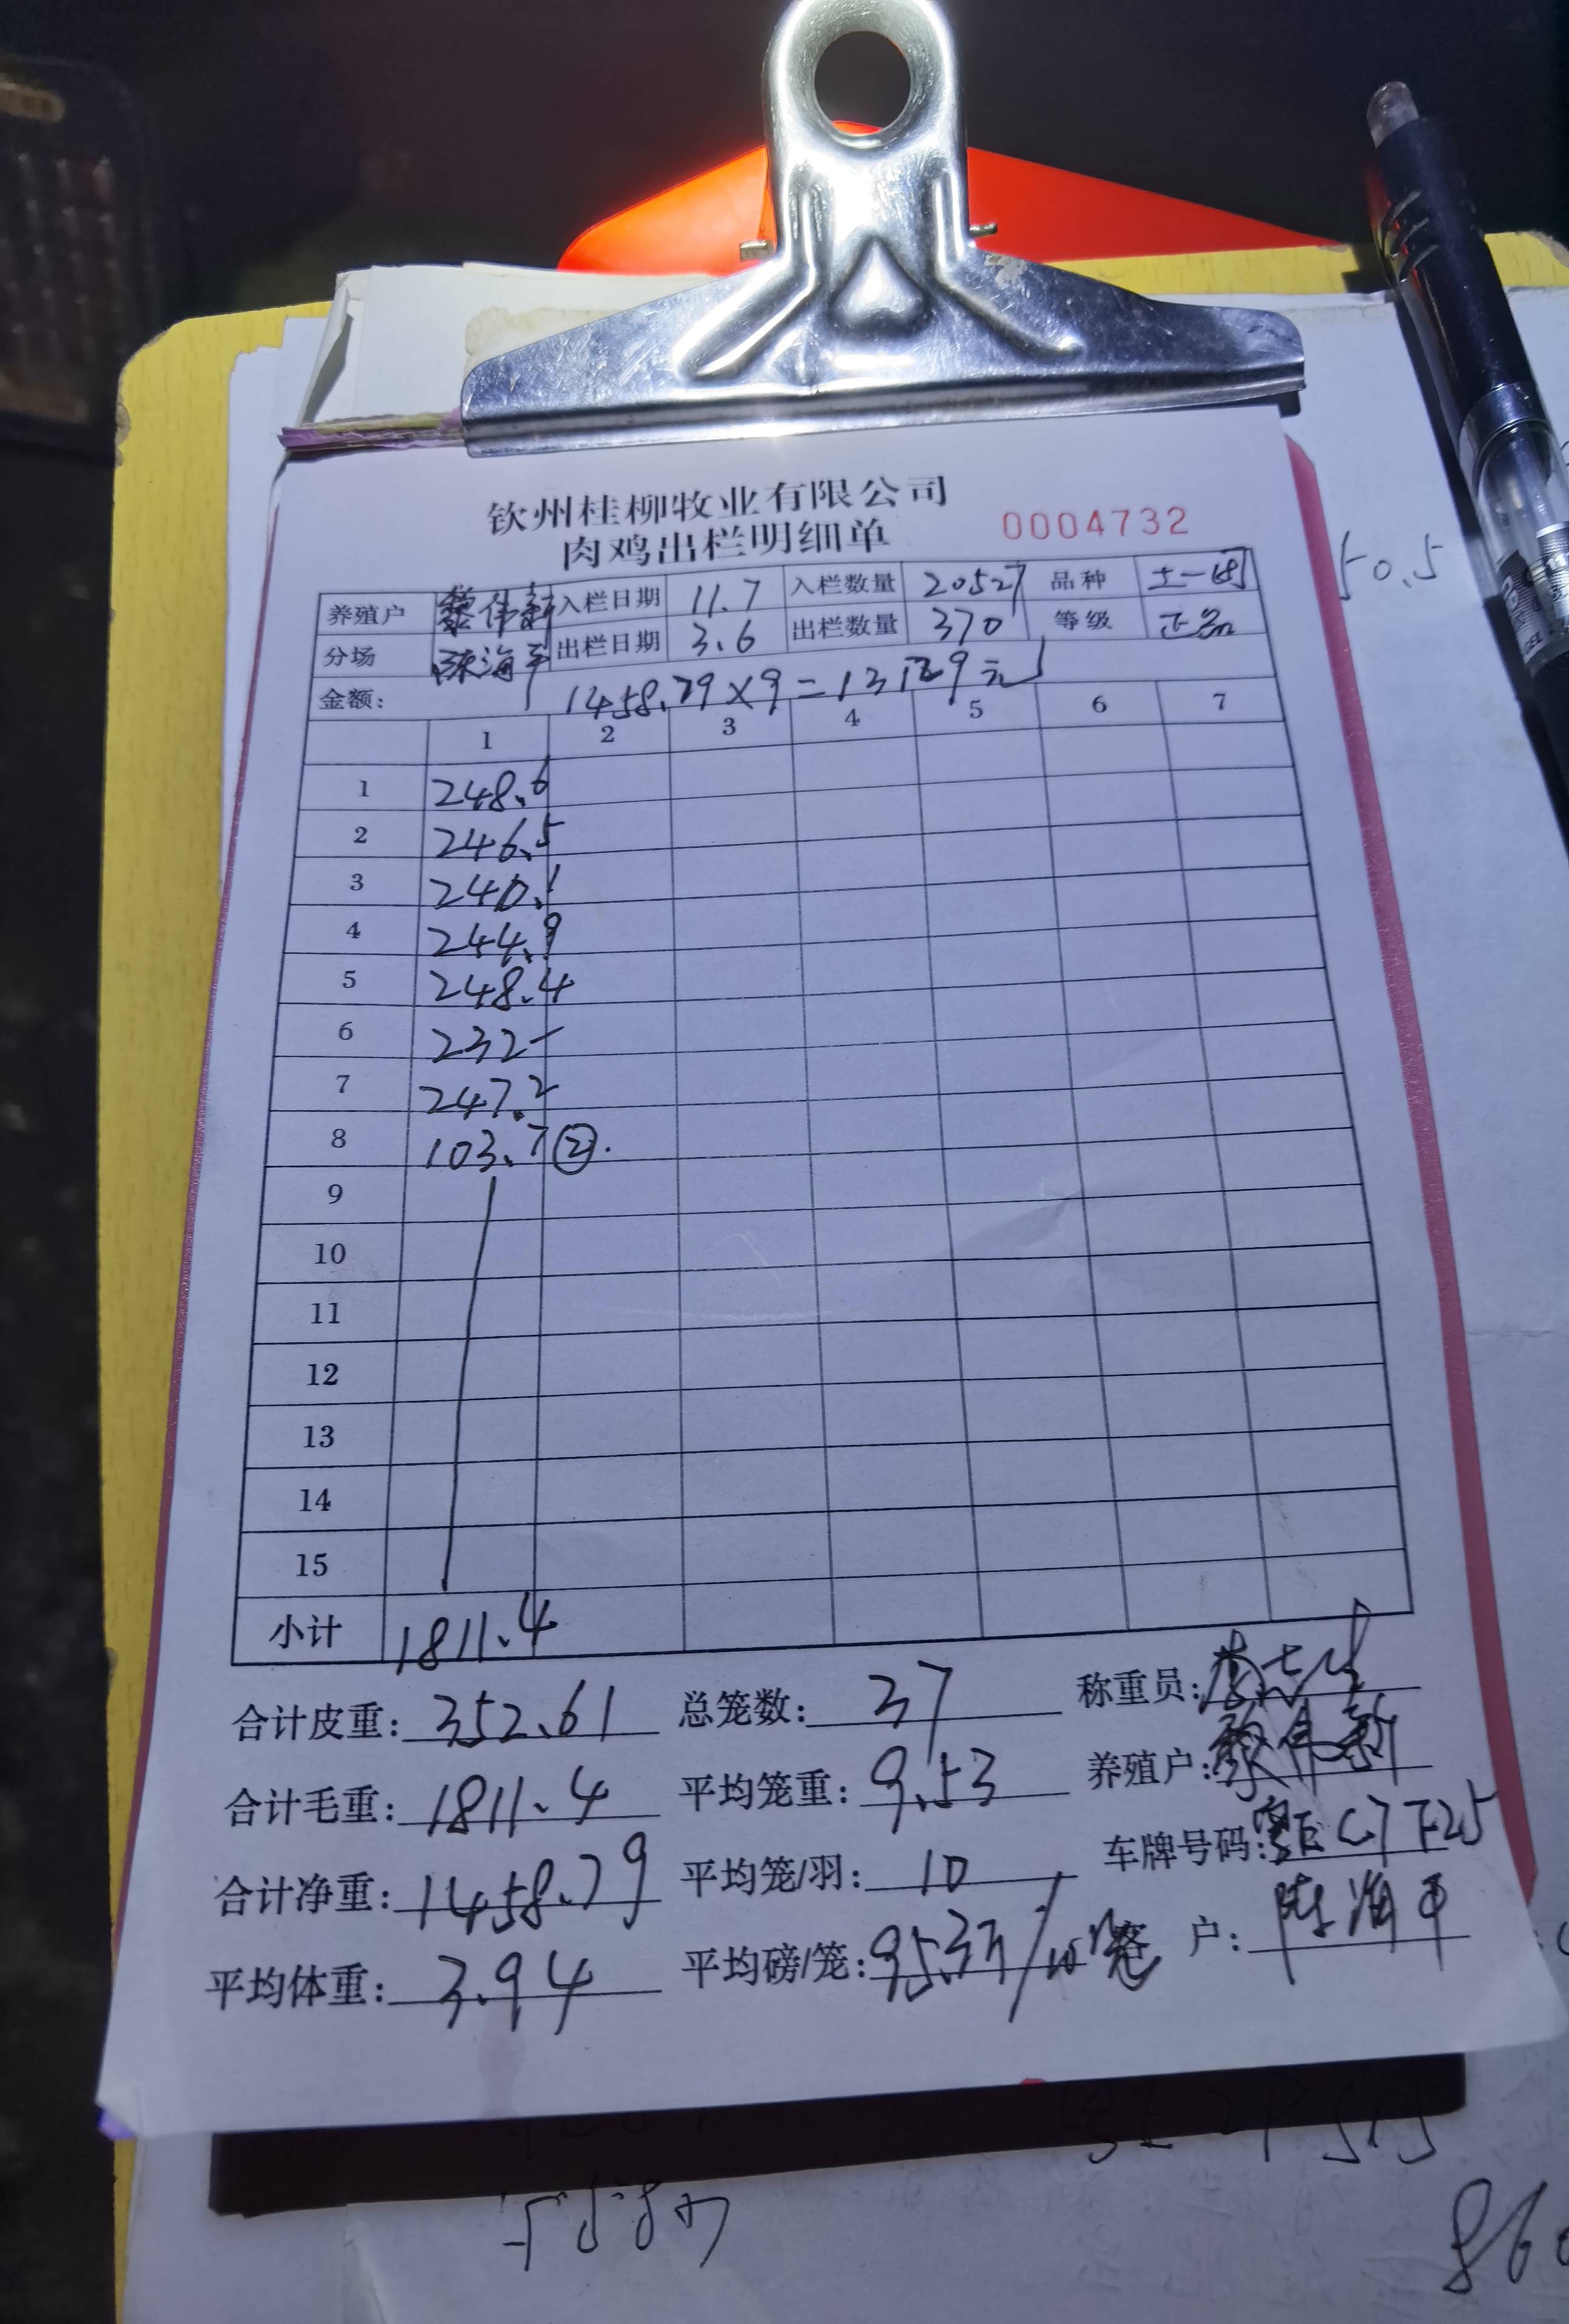 钦州桂柳牧业有限公司
肉鸡出栏明细单 0004732
养殖户 黎伟新 入栏日期 11.7 入栏数量 20527 品种 土一
分场 陈海平 出栏日期 3.6 出栏数量 370 等级 正品
金额: 1458.79×9=13129元
1 2 3 4 5 6 7
1 248.6
2 246.5
3 240.1
4 244.9
5 248.4
6 232-
7 247.2
8 103.7 ②.
9
10
11
12
13
14
15
小计 1811.4
合计皮重: 352.61 总笼数: 37 称重员:
合计毛重: 1811.4 平均笼重: 9.53 养殖户: 黎伟新
合计净重: 1458.79 平均笼/羽: 10 车牌号码: 粤E C7F25
平均体重: 3.94 平均磅/笼: 95.3斤/10笼 客户: 陈海平
50.5
86